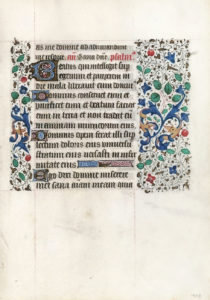 me religio. añ. Sana dñe. psalm'
Beatus qui intelligit sup
egenum et pauperem in
die mala liberabit eum domin'
Dominus conseruet eum et
uiuificet eum et beatum faciat
eum in terra et non tradat eū
in animam inimicorum eius
Dominus opem ferat illi sup
lectum doloris eius uniuersū
stratum eius uersasti in infir
mitate eius
Ego dixi domine miserere
mei sana animam meam quia